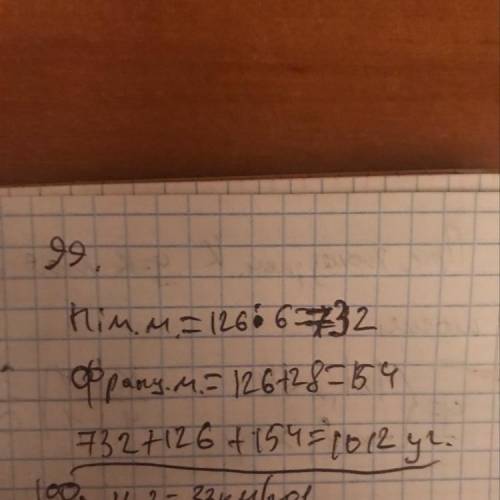 99.
Нім.м. = 126 · 6 = 732
Франц.м. = 126+28=154
732+126+154=1012 уч.
100.